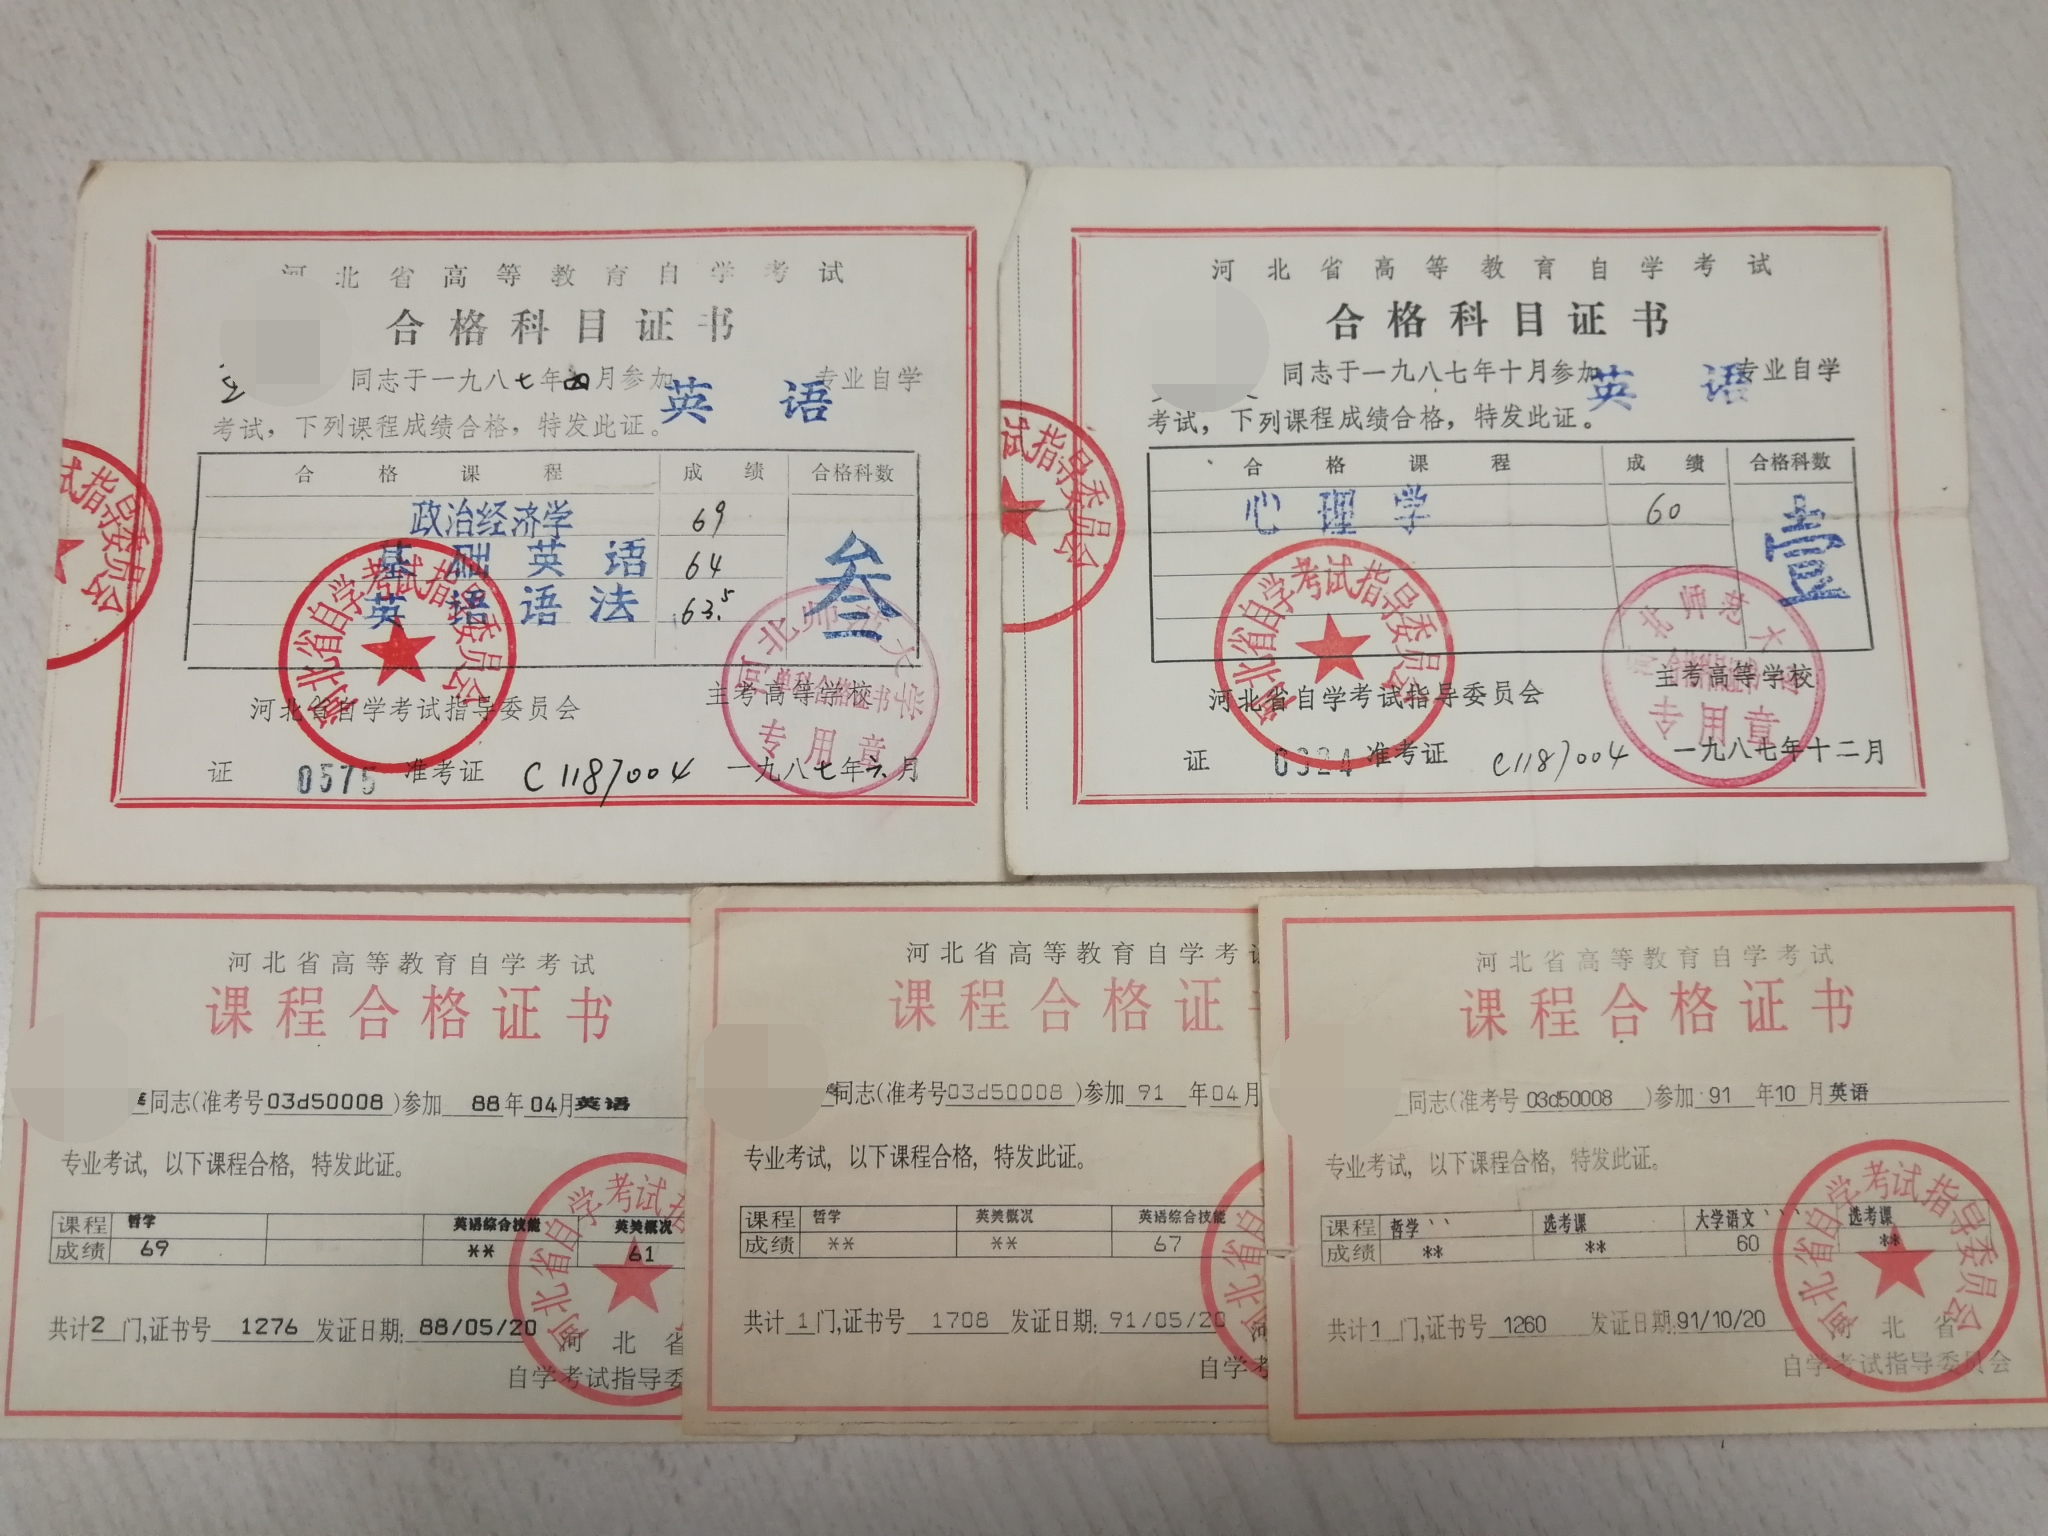 河北省高等教育自学考试
合格科目证书
同志于一九八七年四月参加英语专业自学
考试，下列课程成绩合格，特发此证。
合格课程 成绩 合格科数
政治经济学 69 叁
基础英语 64
英语语法 63.5
河北省自学考试指导委员会 主考高等学校
证 0575 准考证 C1187004 一九八七年六月
试指导委员会
河北省自学考试指导委员会
河北师范大学
单科合格证书
专用章
河北省高等教育自学考试
合格科目证书
同志于一九八七年十月参加英语专业自学
考试，下列课程成绩合格，特发此证。
合格课程 成绩 合格科数
心理学 60 壹
河北省自学考试指导委员会 主考高等学校
证 0324 准考证 C1187004 一九八七年十二月
试指导委员会
河北省自学考试指导委员会
河北师范大学
专用章
河北省高等教育自学考试
课程合格证书
同志(准考号03d50008)参加 88年04月英语
专业考试, 以下课程合格, 特发此证。
课程 哲学 英语综合技能 英美概况
成绩 69 ** 61
共计2门,证书号 1276 发证日期:88/05/20
河北省
自学考试指导委
河北省自学考试指
河北省高等教育自学考
课程合格证
同志(准考号03d50008)参加 91年04月
专业考试, 以下课程合格, 特发此证。
课程 哲学 英美概况 英语综合技能
成绩 ** ** 67
共计1门,证书号 1708 发证日期:91/05/20
河
自学考
河北省高等教育自学考试
课程合格证书
同志(准考号03d50008)参加91年10月英语
专业考试, 以下课程合格, 特发此证。
课程 哲学 选考课 大学语文 选考课
成绩 ** ** 60 **
共计1门,证书号 1260 发证日期:91/10/20
河北省
自学考试指导委员会
河北省自学考试指导委员会